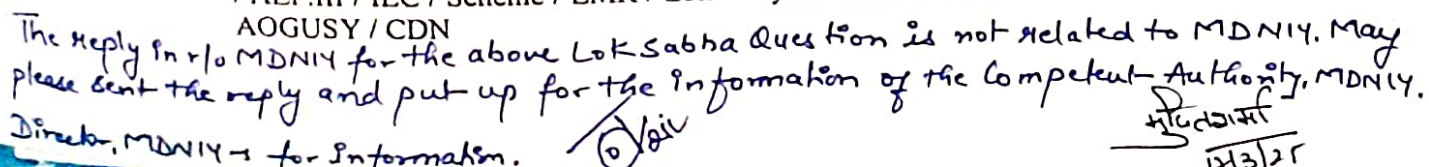 AOGUSY / CDN
The reply in r/o MDNIY for the above Lok Sabha Question is not related to MDNIY. May
please sent the reply and put up for the information of the Competent Authority, MDNIY.
Director, MDNIY → for Information.
12/3/25